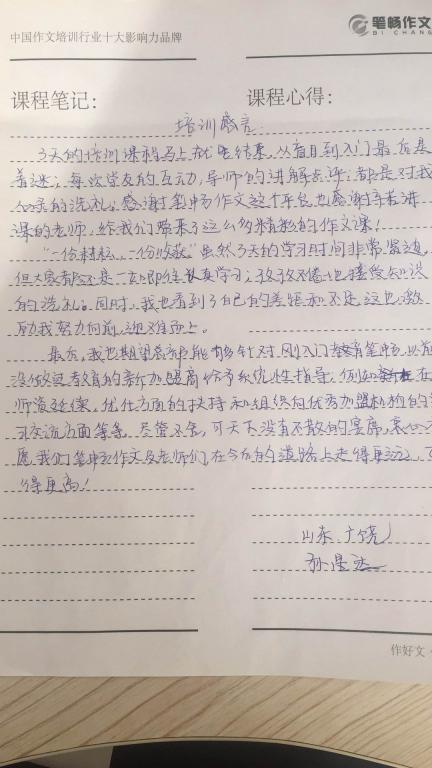 中国作文培训行业十大影响力品牌
笔畅作文
BI CHANG
课程笔记：
课程心得：
培训感言
3天的培训课程马上就要结束，从盲目到入门最后是
着迷；每次学友的互动，导师的讲解点评，都是对我
心灵的洗礼。感谢笔畅作文这个平台，也感谢辛苦讲
课的老师，给我们带来了这么多精彩的作文课！
“一份耕耘，一份收获”虽然3天的学习时间非常紧迫，
但大家都还是一如即往认真学习，孜孜不倦地接受知识
的洗礼。同时，我也看到了自己的差距和不足，这也激
励我努力向前，迎难而上。
最后，我也期望总部能够针对刚入门教育笔畅，以前
没做过教育的新加盟商给予系统性指导，例如在
师资延续，优化方面的扶持和组织向优秀加盟机构的
习交流方面等等。尽管不舍，可天下没有不散的宴席，衷心
愿我们笔畅作文及老师们在今后的道路上走得更远，
得更高！
山东广饶
孙
作好文